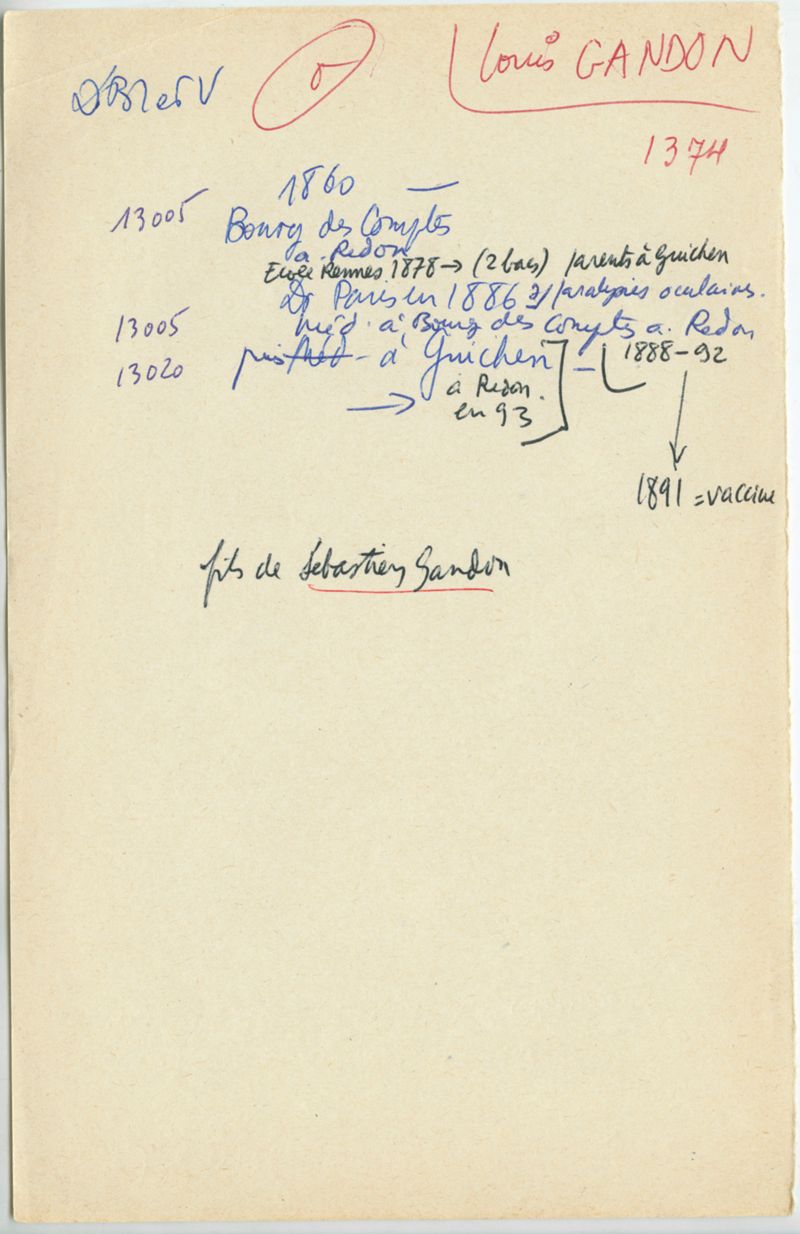 Louis GANDON
1374
1860 —
13005 Bourg des Comptes
a. Redon
Ecole Rennes 1878 → (2 bacs) parents à Guichen
Dr Paris en 1886 s/ paralysies oculaires.
13005 méd. à Bourg des Comptes a. Redon
13020 puis méd - à Guichen - 1888-92
→ a Redon.
en 93
1891 = vaccine
fils de Sébastien Gandon